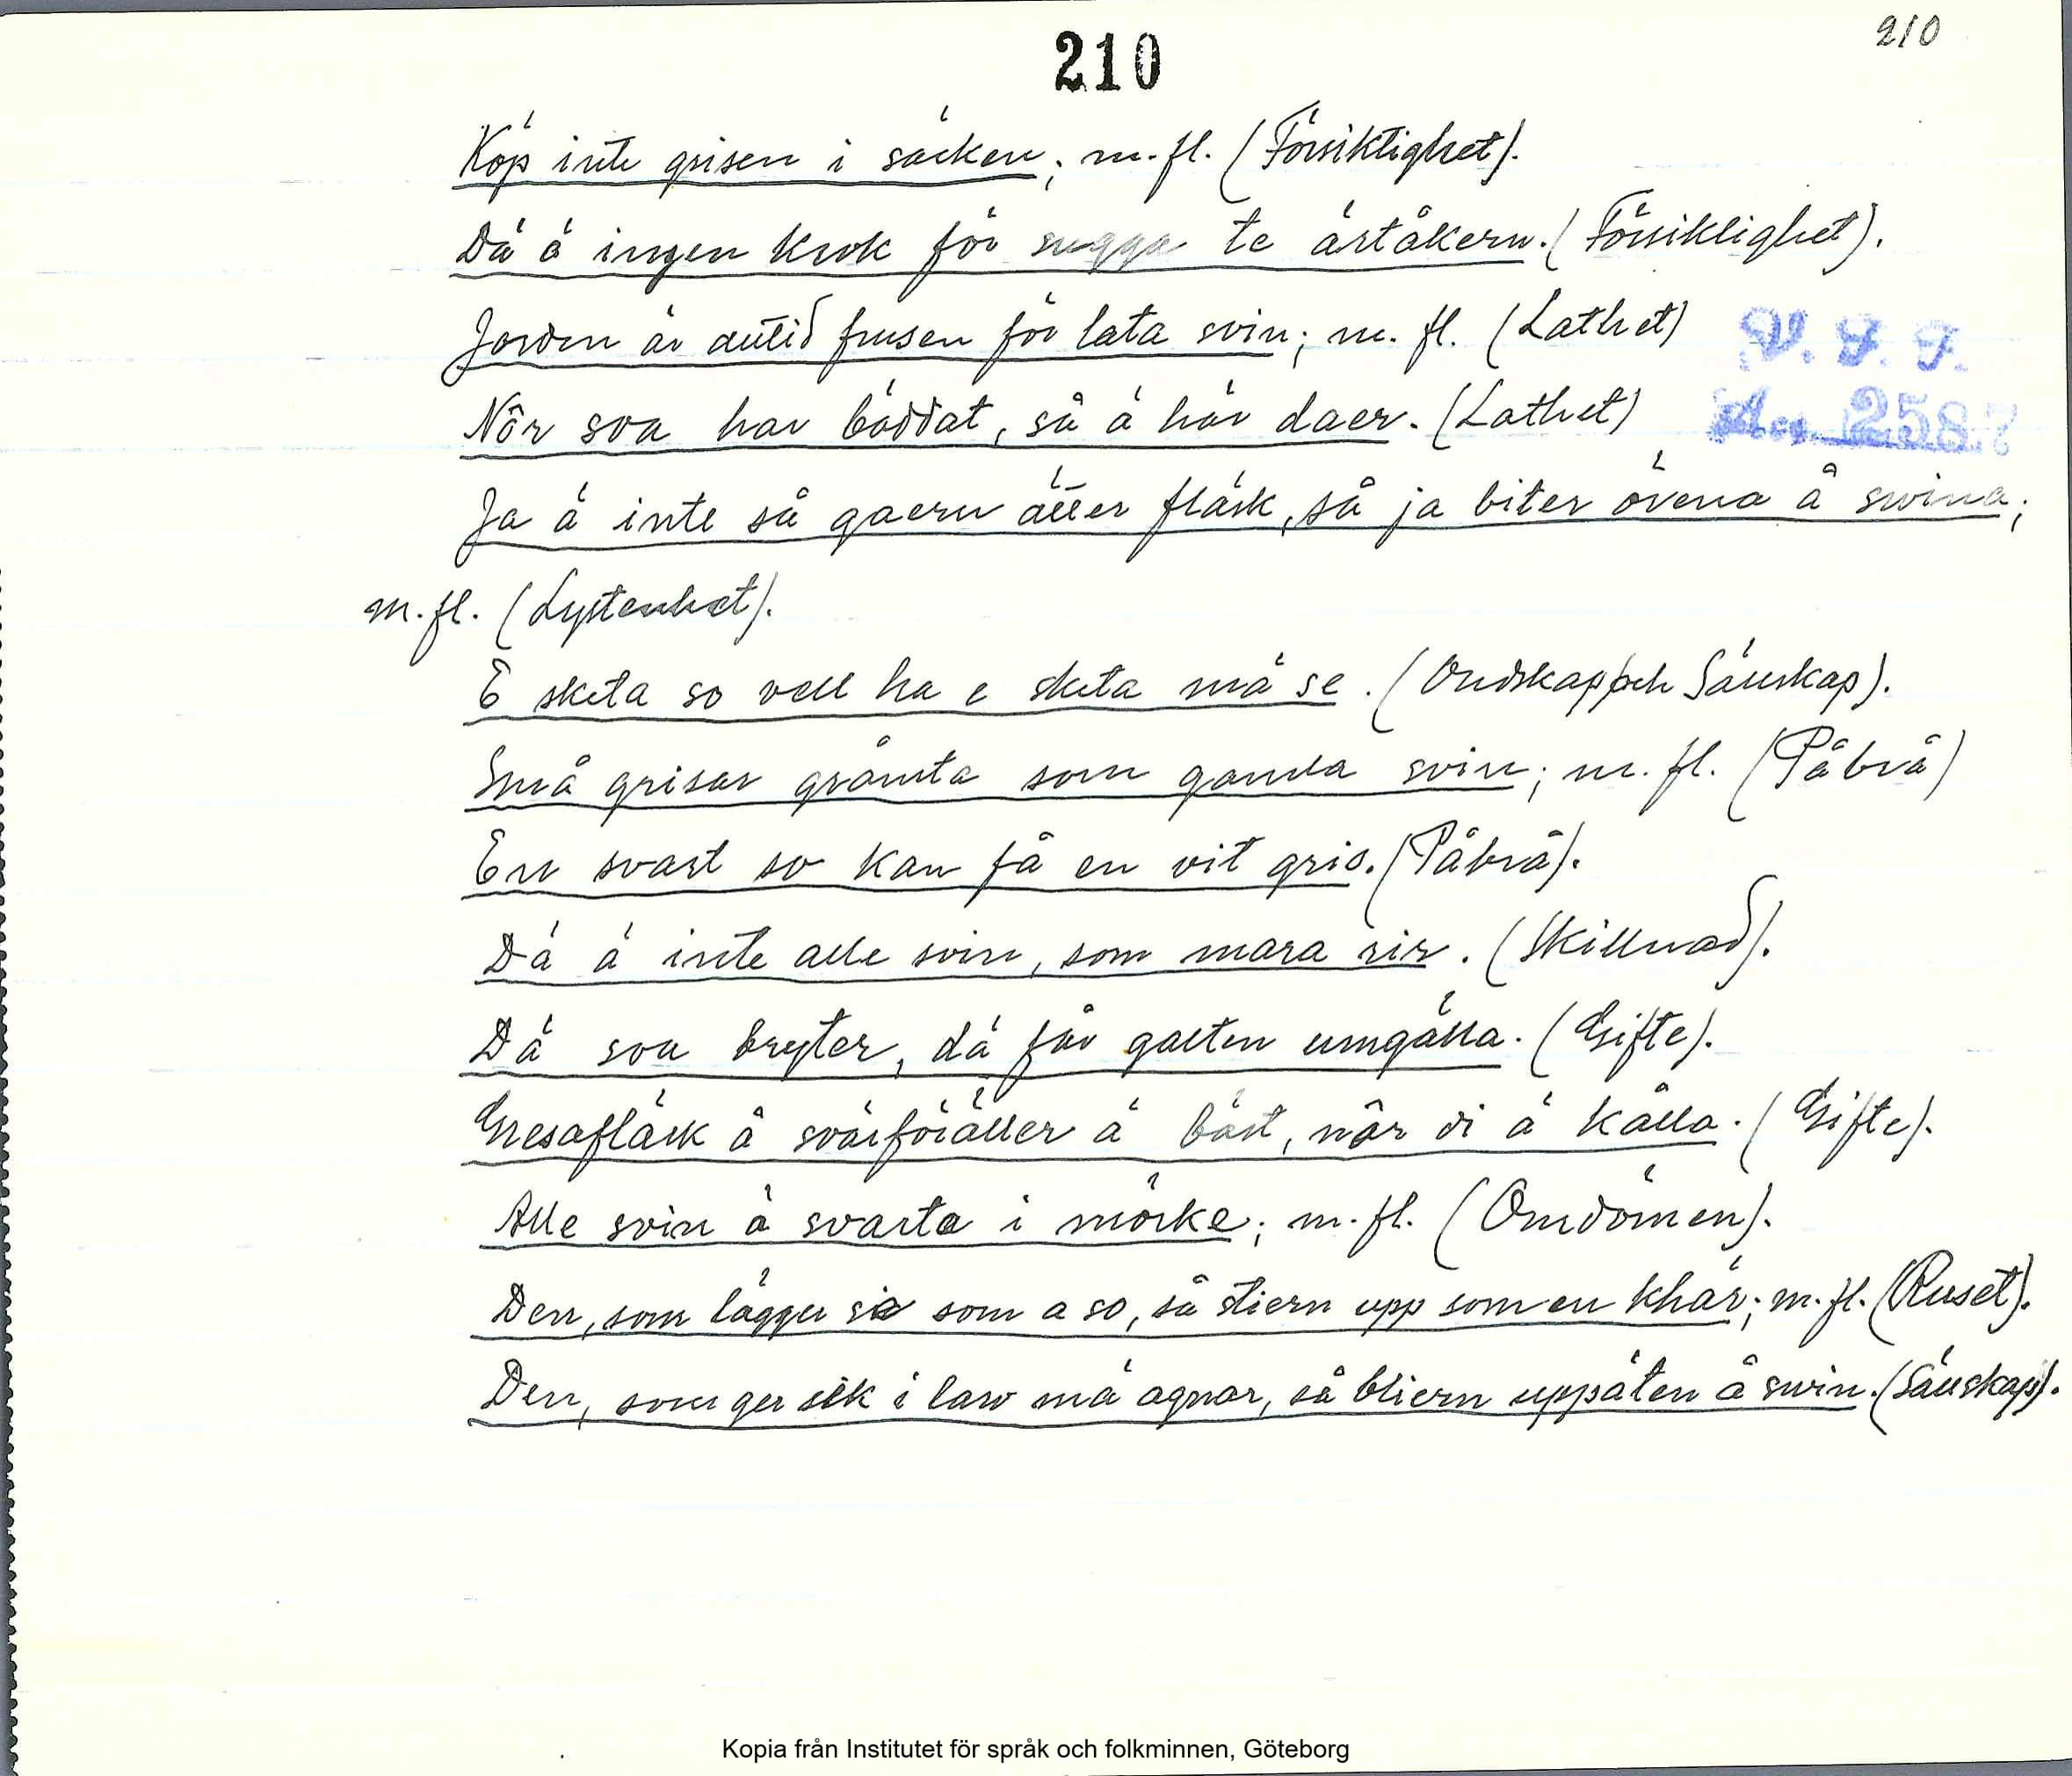 210
210
Köp inte grisen i säcken; m.fl. (Försiktighet).
Dä ä ingen krok för sugga te ärtåkern. (Försiktighet).
Jorden är alltid frusen för lata svin; m.fl. (Lathet)
V. F. F.
När soa har bäddat, så ä här daer. (Lathet)
Acc. 2587
Ja ä inte så gaern äller fläsk, så ja biter övena å svina;
m.fl. (Lystenhet).
E skita so vell ha e skita mä se. (Ondskap och Sämskap).
Små grisar gråmta som gamla svin; m.fl. (Påbrå)
En svart so kan få en vit gris. (Påbrå).
Dä ä inte alle svin, som mara rir. (Skillnad).
Dä soa bryter, dä får galten umgälla. (Gifte).
Gresafläsk å svärföräller ä bäst, når di ä kålla. (Gifte).
Alle svin ä svarta i mörke; m.fl. (Omdömen).
Den, som lägger sia som a so, så stiern upp som en khär; m.fl. (Ruset).
Den, som ger sek i law mä agnar, så bliern uppäten å svin. (Sämskap).
Kopia från Institutet för språk och folkminnen, Göteborg